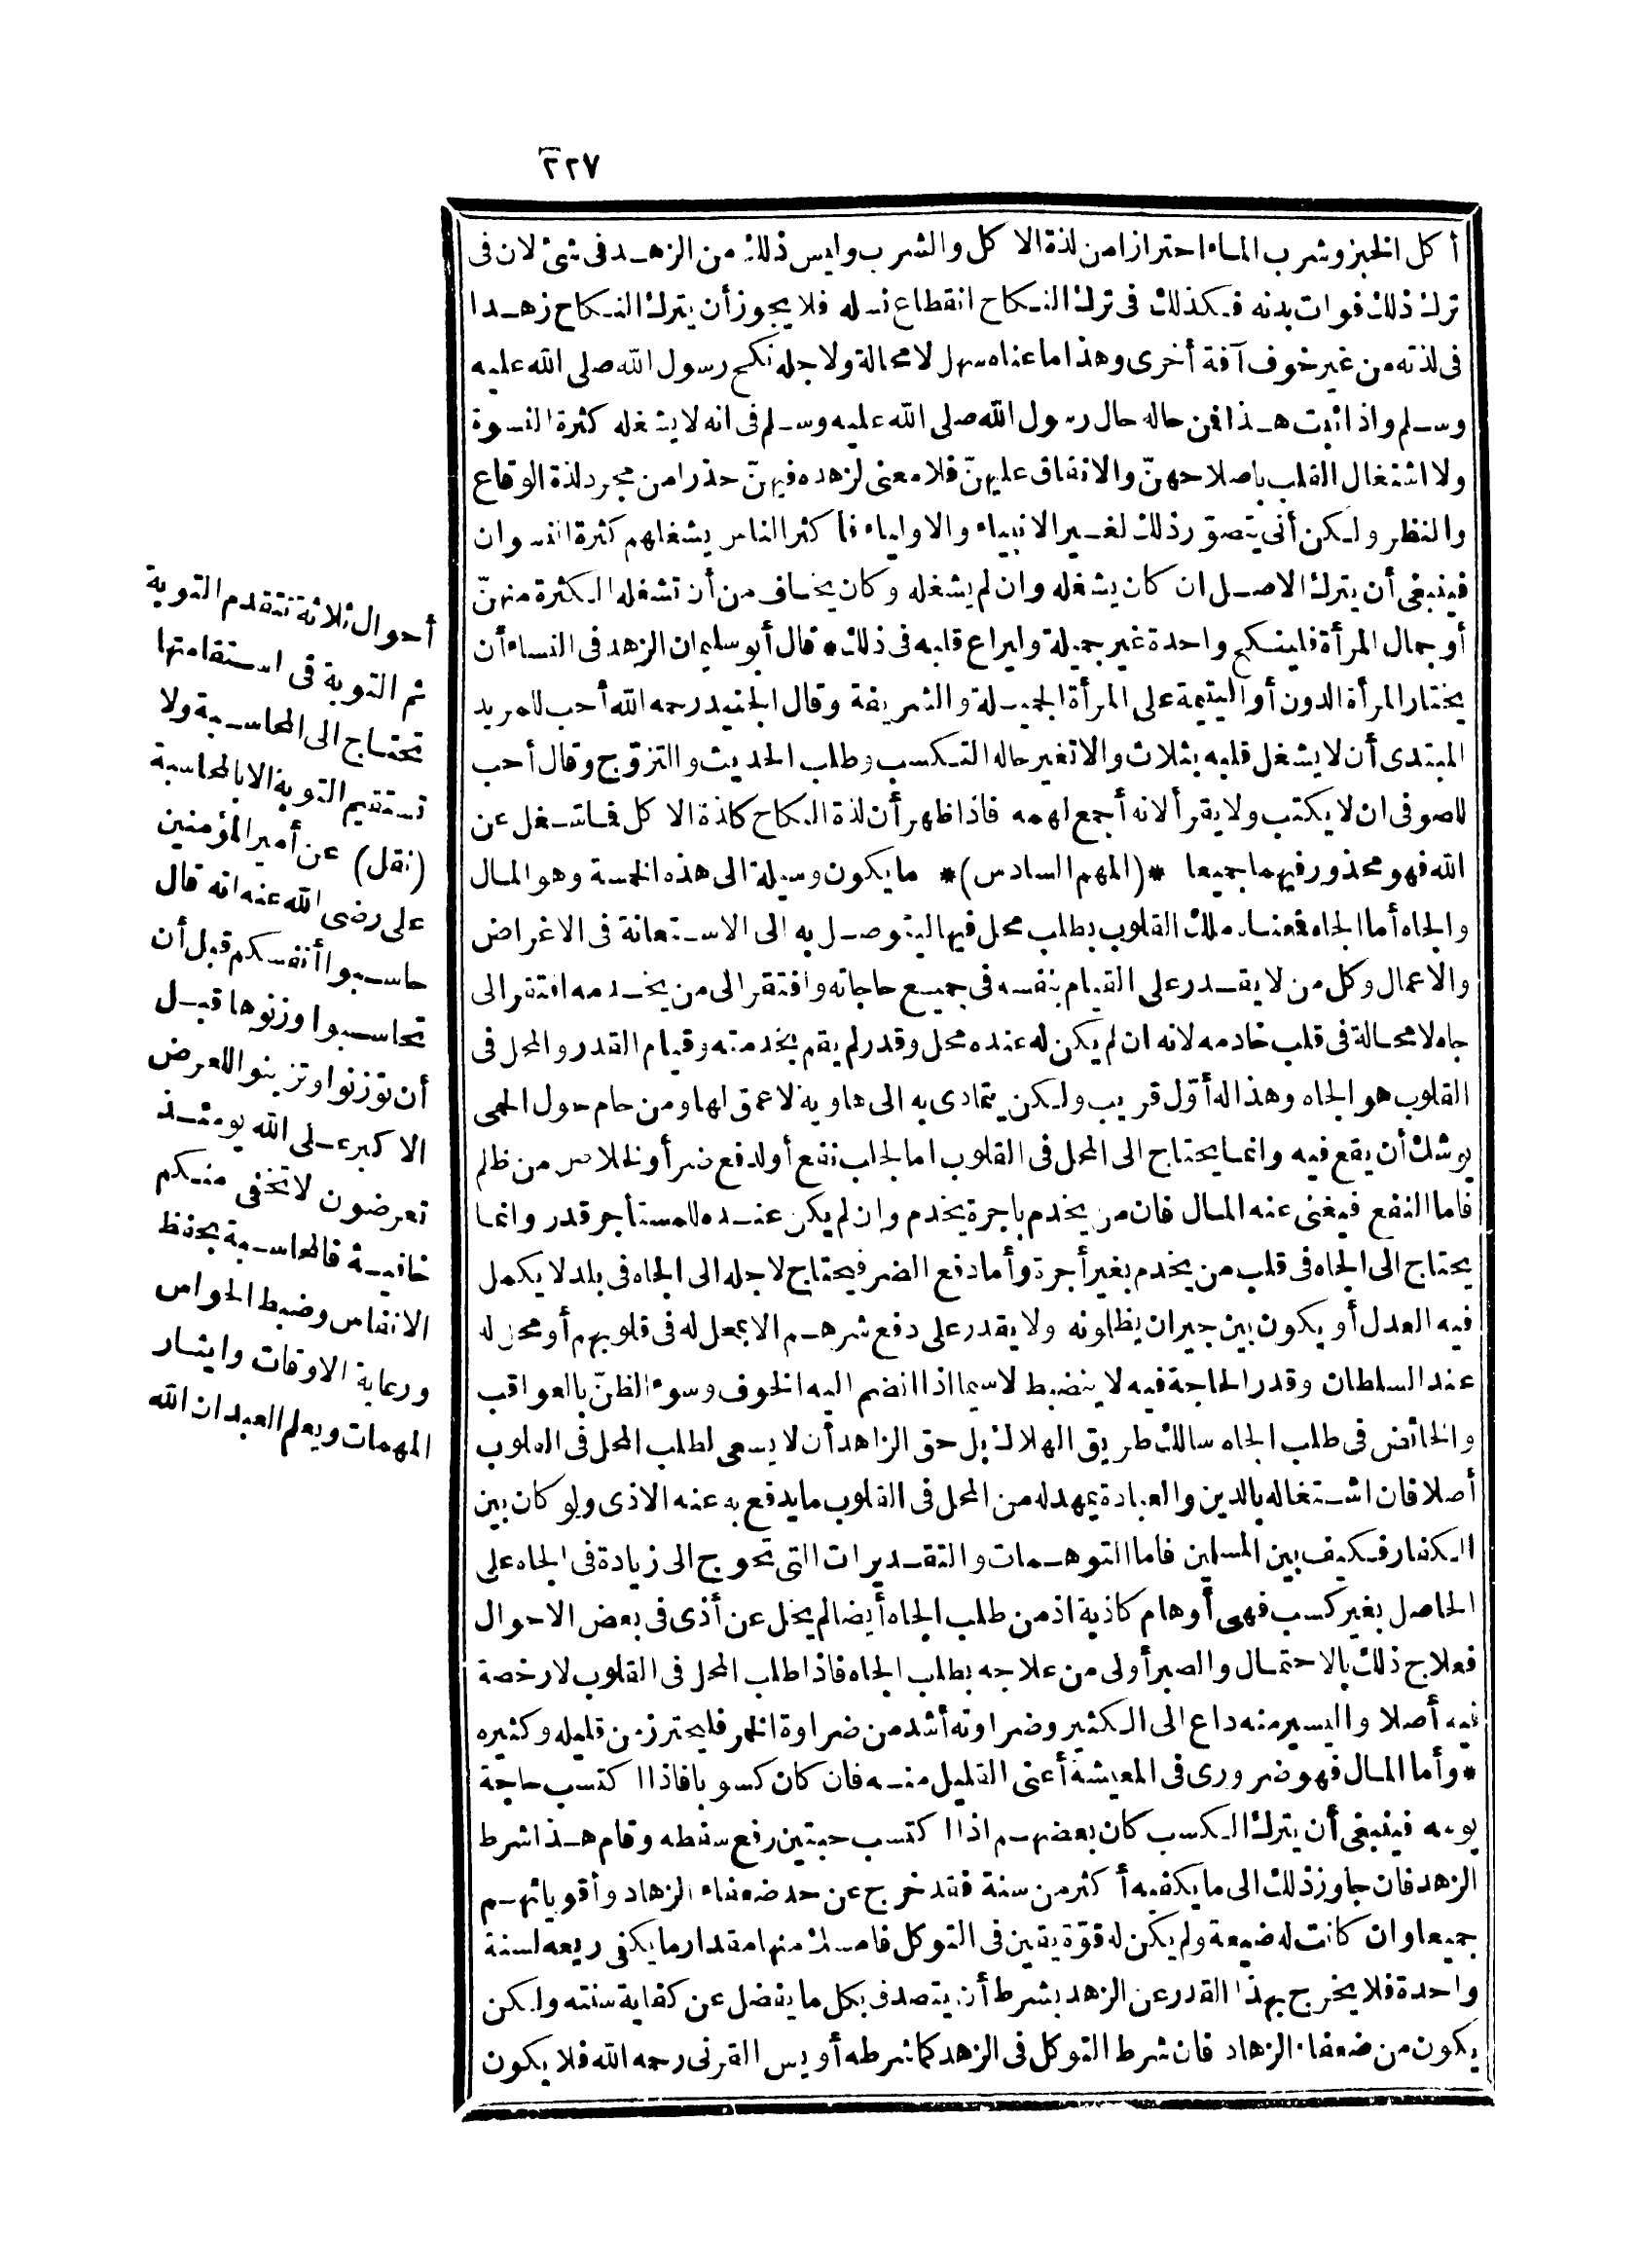 ٢٢٧
أكل الخبز وشرب الماء احترازا من لذة الاكل والشرب وليس ذلك من الزهد فى شئ لان فى
ترك ذلك فوات بدنه فكذلك فى ترك النكاح انقطاع نسله فلا يجوز أن يترك النكاح زهدا
فى لذته من غير خوف آفة أخرى وهذا ما عناه سهل لا محالة ولاجله نكح رسول الله صلى الله عليه
وسلم واذا ثبت هذا فمن حاله حال رسول الله صلى الله عليه وسلم فى انه لا يشغله كثرة النسوة
ولا اشتغال القلب باصلاحهنّ والانفاق عليهنّ فلا معنى لزهده فيهنّ حذرا من مجرد لذة الوقاع
والنظر ولكن أنى يتصوّر ذلك لغير الانبياء والاولياء فأكثر الناس يشغلهم كثرة النسوان
فينبغى أن يترك الاصل ان كان يشغله وان لم يشغله وكان يخاف من أن تشغله الكثرة منهنّ
أو جمال المرأة فلينكح واحدة غير جميلة وليراع قلبه فى ذلك * قال أبو سليمان الزهد فى النساء أن
يختار المرأة الدون أو اليتيمة على المرأة الجميلة والشريفة وقال الجنيد رحمه الله أحب للمريد
المبتدى أن لا يشغل قلبه بثلاث والا تغير حاله التكسب وطلب الحديث والتزوّج وقال أحب
للصوفى ان لا يكتب ولا يقرأ لانه أجمع لهمه فاذا ظهر أن لذة النكاح كلذة الاكل فما شغل عن
الله فهو محذور فيهما جميعا *(المهم السادس)* ما يكون وسيلة الى هذه الخمسة وهو المال
والجاه أما الجاه فمعناه ملك القلوب بطلب محل فيها ليتوصل به الى الاستعانة فى الاغراض
والاعمال وكل من لا يقدر على القيام بنفسه فى جميع حاجاته وافتقر الى من يخدمه افتقر الى
جاه لا محالة فى قلب خادمه لانه ان لم يكن له عنده محل وقدر لم يقم بخدمته وقيام القدر والمحل فى
القلوب هو الجاه وهذا له أوّل قريب ولكن يتمادى به الى هاوية لا عمق لها ومن حام حول الحمى
يوشك أن يقع فيه وانما يحتاج الى المحل فى القلوب اما لجلب نفع أو لدفع ضر أو لخلاص من ظلم
فاما النفع فيغنى عنه المال فان من يخدم باجرة يخدم وان لم يكن عنده للمستأجر قدر وانما
يحتاج الى الجاه فى قلب من يخدم بغير أجرة وأما دفع الضر فيحتاج لاجله الى الجاه فى بلد لا يكمل
فيه العدل أو يكون بين جيران يظلمونه ولا يقدر على دفع شرهم الا بمحل له فى قلوبهم أو محل له
عند السلطان وقدر الحاجة فيه لا ينضبط لا سيما اذا انضم اليه الخوف وسوء الظنّ بالعواقب
والخائض فى طلب الجاه سالك طريق الهلاك بل حق الزاهد أن لا يسعى لطلب المحل فى القلوب
أصلا فان اشتغاله بالدين والعبادة يمهد له من المحل فى القلوب ما يدفع به عنه الاذى ولو كان بين
الكفار فكيف بين المسلمين فاما التوهمات والتقديرات التى تحوج الى زيادة فى الجاه على
الحاصل بغير كسب فهى أوهام كاذبة اذ من طلب الجاه أيضا لم يخل عن أذى فى بعض الاحوال
فعلاج ذلك بالاحتمال والصبر أولى من علاجه بطلب الجاه فاذا طلب المحل فى القلوب لا رخصة
فيه أصلا واليسير منه داع الى الكثير وضراوته أشد من ضراوة الخمر فليحترز من قليله وكثيره
* وأما المال فهو ضرورى فى المعيشة أعنى القليل منه فان كان كسوبا فاذا اكتسب حاجة
يومه فينبغى أن يترك الكسب كان بعضهم اذا اكتسب حبتين رفع سفطه وقام هذا شرط
الزهد فان جاوز ذلك الى ما يكفيه أكثر من سنة فقد خرج عن حد ضعفاء الزهاد وأقويائهم
جميعا وان كانت له ضيعة ولم يكن له قوّة يقين فى التوكل فامسك منها مقدار ما يكفى ريعه لسنة
واحدة فلا يخرج بهذا القدر عن الزهد بشرط أن يتصدق بكل ما يفضل عن كفاية سنته ولكن
يكون من ضعفاء الزهاد فان شرط التوكل فى الزهد كما شرطه أويس القرنى رحمه الله فلا يكون
أحوال ثلاثة تتقدم التوبة
ثم التوبة فى استقامتها
تحتاج الى المحاسبة ولا
تستقيم التوبة الا بالمحاسبة
(نقل) عن أمير المؤمنين
على رضى الله عنه انه قال
حاسبوا أنفسكم قبل أن
تحاسبوا وزنوها قبل
أن توزنوا وتزينوا للعرض
الاكبر على الله يومئذ
تعرضون لا تخفى منكم
خافية فالمحاسبة بحفظ
الانفاس وضبط الحواس
ورعاية الاوقات وايثار
المهمات ويعلم العبد ان الله